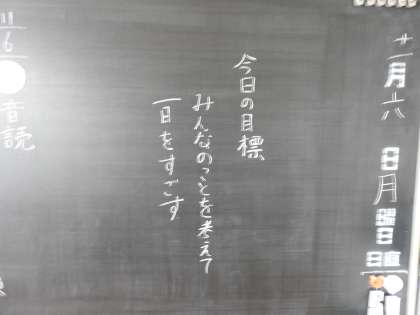 十一月六日月曜日
日直
今日の目標
みんなのことを考えて
一日をすごす
11/6
音読